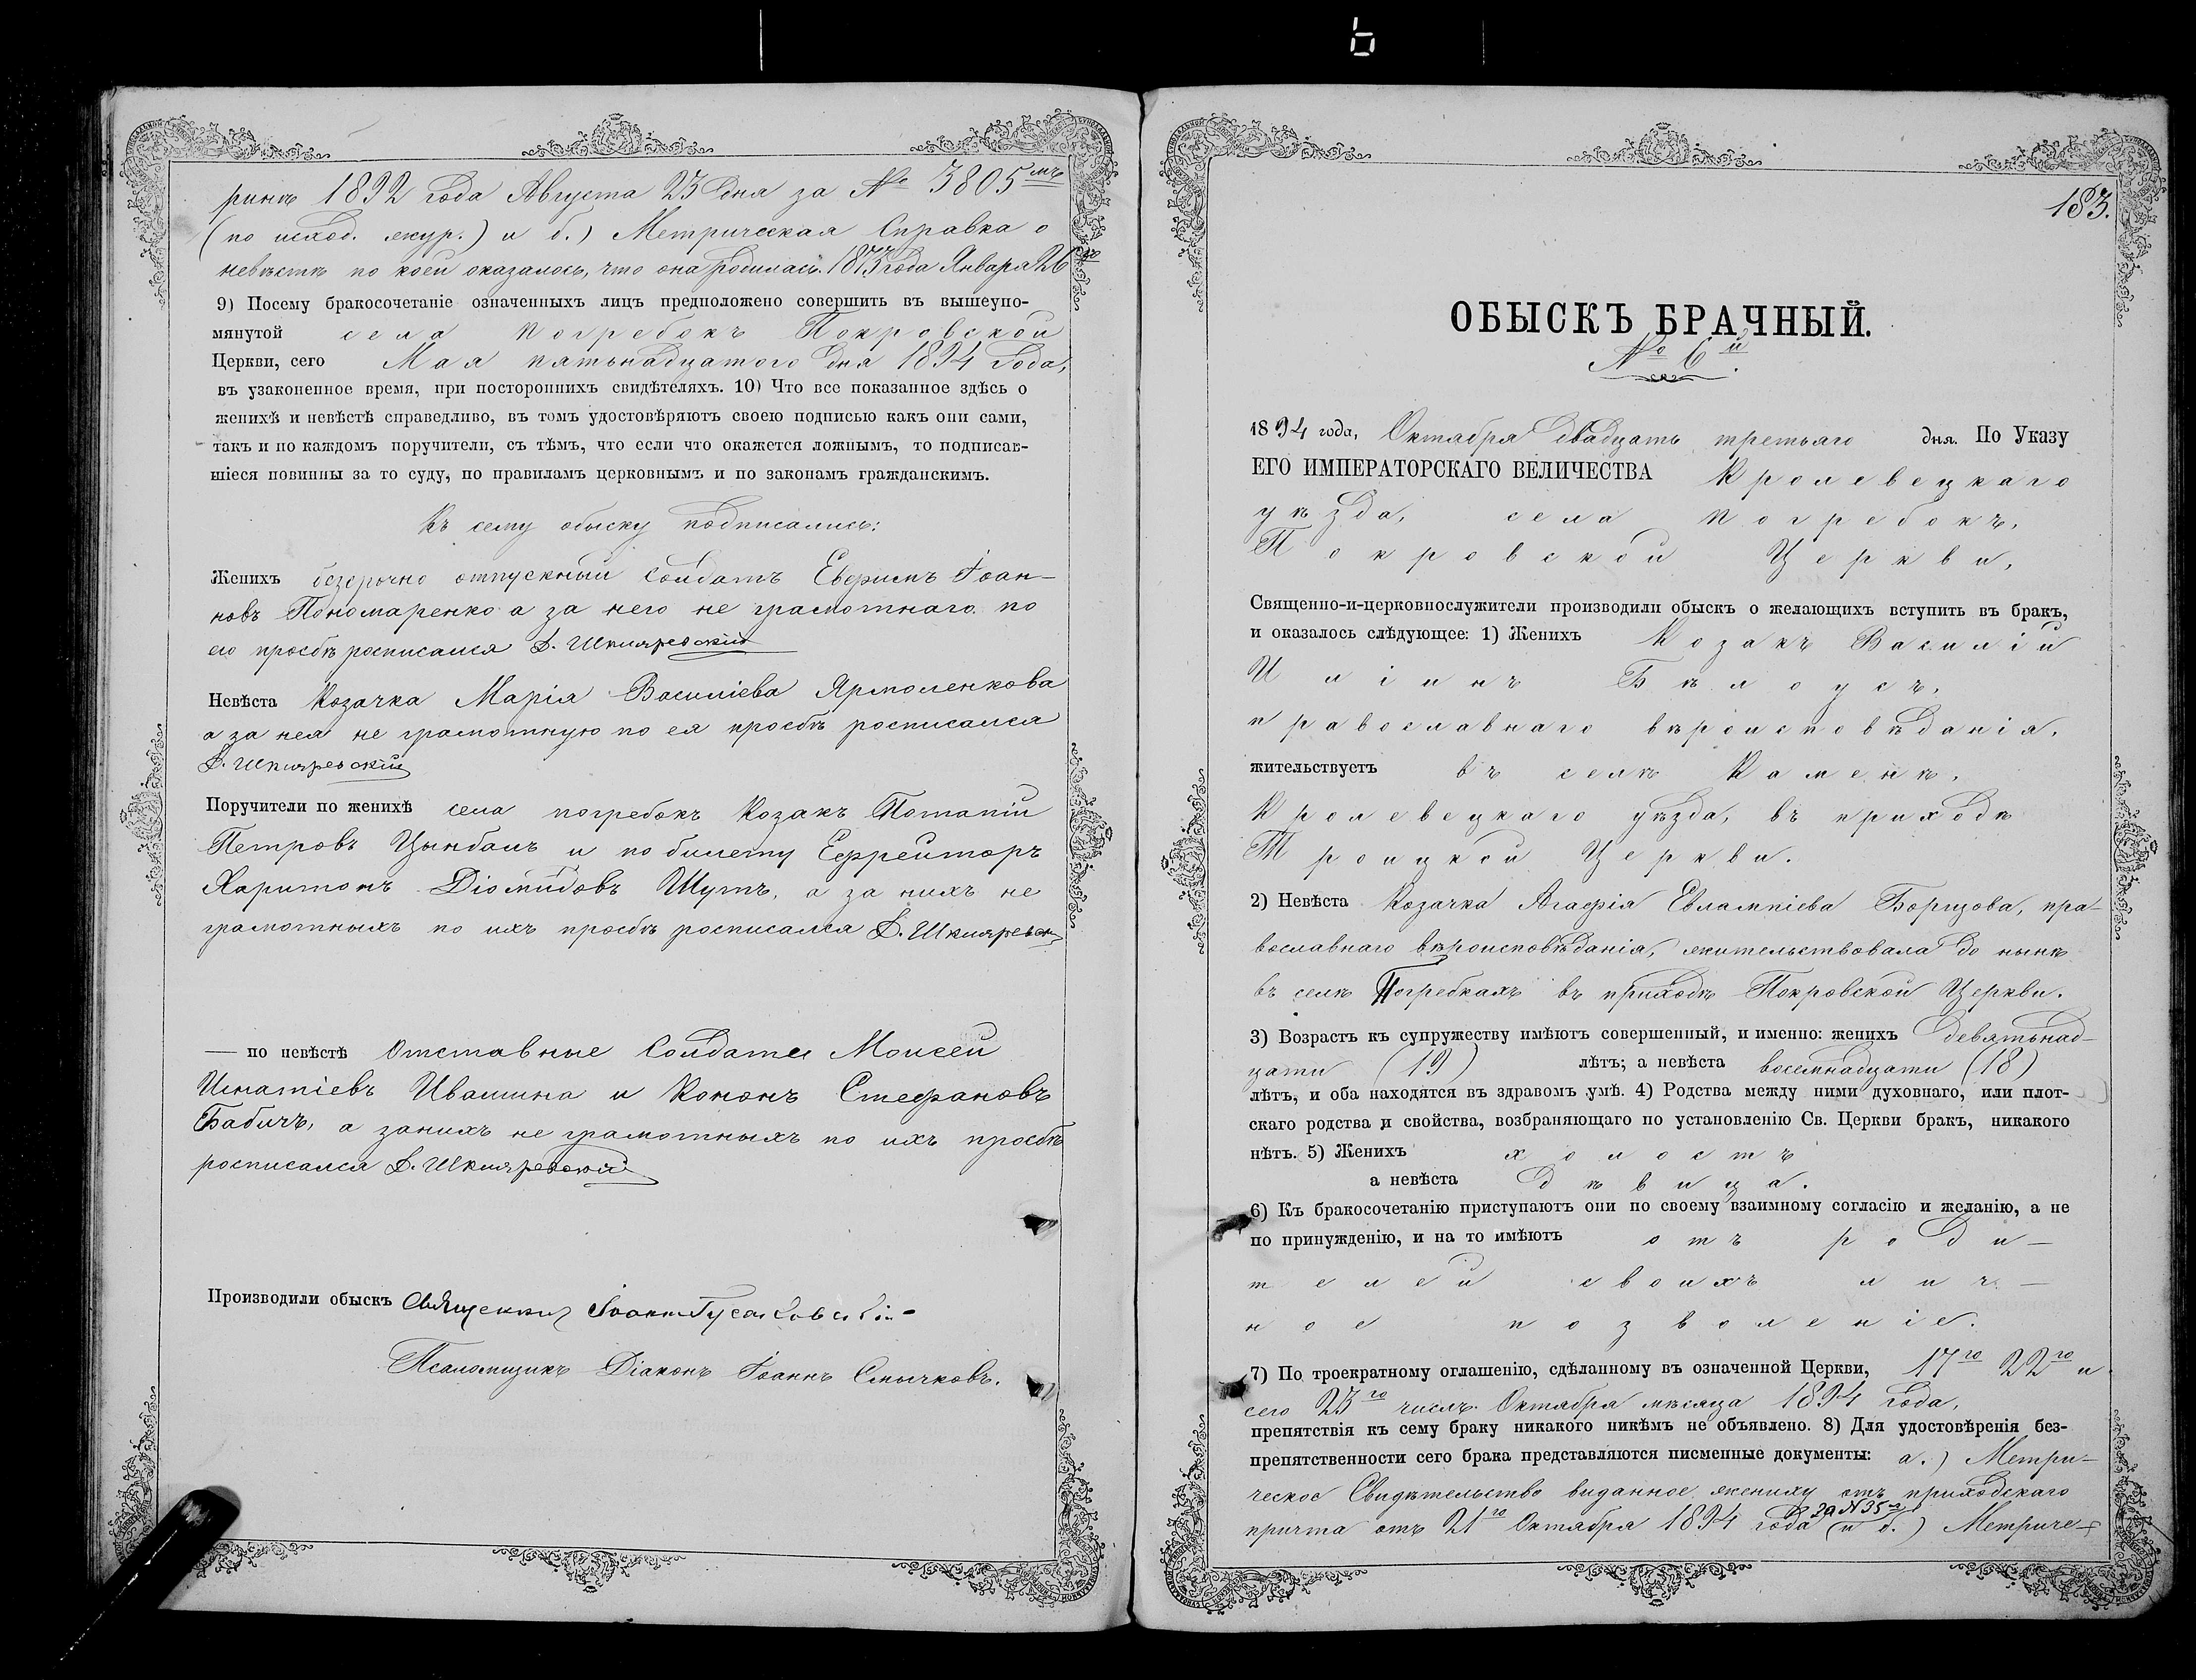 ринъ 1892 года Августа 23 дня за № 3805мъ
(по исход. жур.) и б.) Метрическая Справка о
невѣстѣ по коей оказалось, что она родилась 1873 года Января 26го
9) Посему бракосочетаніе означенныхъ лицъ предположено совершить въ вышеупо-
мянутой села Погребокъ Покровской
Церкви, сего Мая пятьнадцатого дня 1894 года,
въ узаконенное время, при постороннихъ свидѣтеляхъ. 10) Что все показанное здѣсь о
женихѣ и невѣстѣ справедливо, въ томъ удостовѣряютъ своею подписью какъ они сами,
такъ и по каждомъ поручители, съ тѣмъ, что если что окажется ложнымъ, то подписав-
шіеся повинны за то суду, по правиламъ церковнымъ и по законамъ гражданскимъ.
Къ сему обыску подписались:
Женихъ безсрочно отпускный Солдатъ Евфимъ Іоан-
новъ Пономаренко а за него не грамотнаго по
его просбѣ росписался Д. Шкляревскій
Невѣста Козачка Марія Василіева Ярмоленкова
а за нея не грамотную по ея просбѣ росписался
Д. Шкляревскій
Поручители по женихѣ села погребокъ Козакъ Потапій
Петровъ Цымбалъ и по билету Ефрейторъ
Харитонъ Діомидовъ Шутъ, а за нихъ не
грамотныхъ по ихъ просбѣ росписался Д. Шкляревск
— по невѣстѣ Отставные Солдаты Моисей
Игнатіевъ Ивашина и Кононъ Стефановъ
Бабичъ, а занихъ не грамотныхъ по ихъ просбѣ
росписался Д. Шкляревскій
Производили обыскъ Священникъ Іоаннъ
Псаломщикъ Діаконъ Іоаннъ Смычковъ.
183.
ОБЫСКЪ БРАЧНЫЙ.
№ 6й.
1894 года, Октября двадцать третьяго дня. По Указу
ЕГО ИМПЕРАТОРСКАГО ВЕЛИЧЕСТВА Кролевецкаго
уѣзда, села Погребокъ,
Покровской Церкви,
Священно-и-церковнослужители производили обыскъ о желающихъ вступить въ бракъ,
и оказалось слѣдующее: 1) Женихъ Козакъ Василій
Иліинъ Бѣлоусъ,
православнаго вѣроисповѣданія,
жительствуетъ въ селѣ Каменкѣ,
Кролевецкаго уѣзда, въ приходѣ
Троицкой Церкви.
2) Невѣста Козачка Агафія Евлампіева Борцова, пра-
вославнаго вѣроисповѣданія, жительствовала до нынѣ
въ селѣ Погребкахъ въ приходѣ Покровской Церкви.
3) Возрастъ къ супружеству имѣютъ совершенный, и именно: женихъ девятьнад-
цати (19) лѣтъ; а невѣста восемнадцати (18)
лѣтъ, и оба находятся въ здравомъ умѣ. 4) Родства между ними духовнаго, или плот-
скаго родства и свойства, возбраняющаго по установленію Св. Церкви бракъ, никакого
нѣтъ. 5) Женихъ холостъ
а невѣста дѣвица.
6) Къ бракосочетанію приступаютъ они по своему взаимному согласію и желанію, а не
по принужденію, и на то имѣютъ отъ роди-
телей своихъ лич-
ное позволеніе.
7) По троекратному оглашенію, сдѣланному въ означенной Церкви, 17го 22го и
сего 23го числъ Октября мѣсяца 1894 года,
препятствія къ сему браку никакого никѣмъ не объявлено. 8) Для удостовѣренія без-
препятственности сего брака представляются писменные документы: а.) Метри-
ческое Свидѣтельство виданное жениху отъ приходскаго
за N 35
причта отъ 21го Октября 1894 года и б.) Метриче-